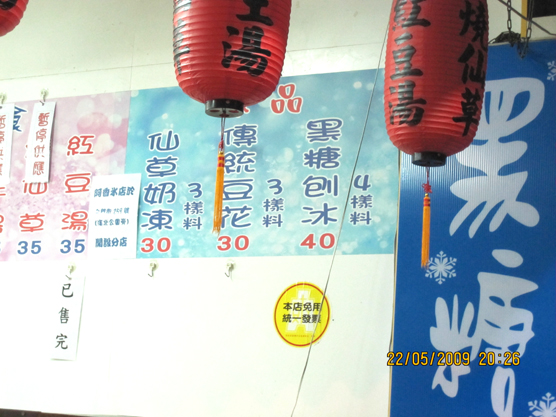 豆湯
豆豆湯
燒仙草
品
暫停供應
暫停供應
仙草
35
紅豆湯
35
已售完
開設分店
仙草奶凍
3樣料
30
傳統豆花
3樣料
30
黑糖刨冰
4樣料
40
本店免用
統一發票
黑糖
22/05/2009 20:26